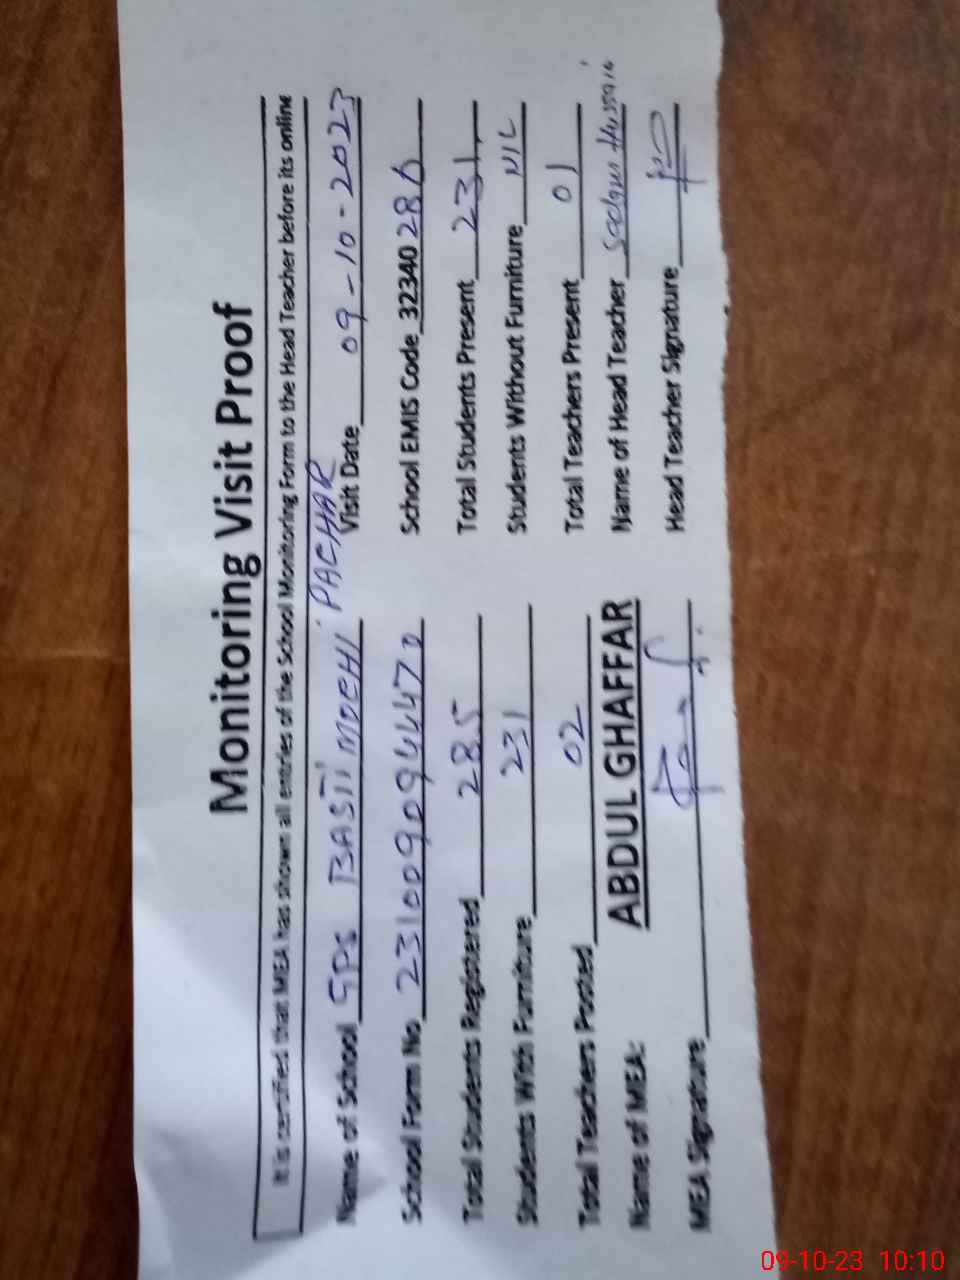 Monitoring Visit Proof
It is certified that MEA has shown all entries of the School Monitoring Form to the Head Teacher before its online
Name of School GPS BASTI MOCHI PACHAR
Visit Date 09-10-2023
School Form No 231009094470
School EMIS Code 32340286
Total Students Registered 285
Total Students Present 231
Students With Furniture 231
Students Without Furniture NIL
Total Teachers Posted 02
Total Teachers Present 01
Name of MEA: ABDUL GHAFFAR
Name of Head Teacher Hussain
MEA Signature
Head Teacher Signature
09-10-23 10:10